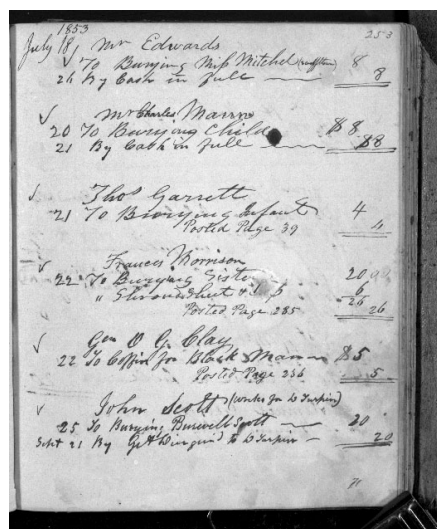 1853 253
July 18 Mr Edwards
To Burying Miss Mitchel 8
26 By Cash in full 8
Mr Charles Mann
20 To Burying Child $8
21 By Cash in full $8
Thos Garrett
21 To Burying Infant 4
Posted Page 39 4
Frances Morrison
22 To Burying Sister 20
" Shroud Sheet & 6
26
Posted Page 285 26
Gen O G Clay
22 To Coffin for Black Mann $5
Posted Page 256 5
John Scott (works for D Turpin)
25 To Burying Burwell Scott 20
Sept 21 By to D Turpin 20
71